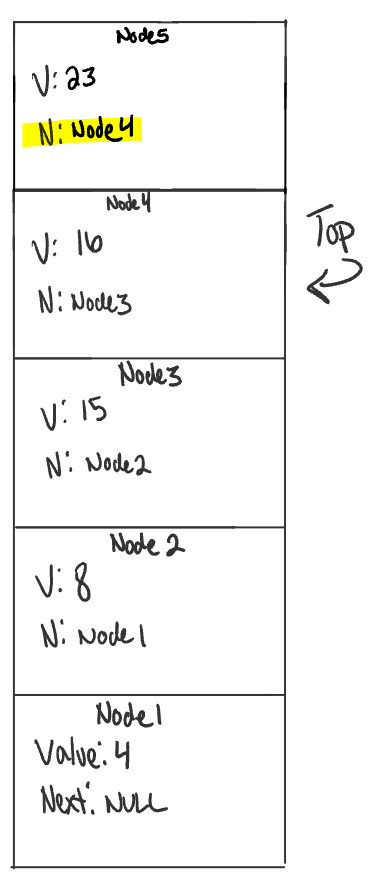 Node5
V: 23
N: Node4
Node4
V: 16
N: Node3
Top
Node3
V: 15
N: Node2
Node 2
V: 8
N: Node1
Node1
Value: 4
Next: NULL